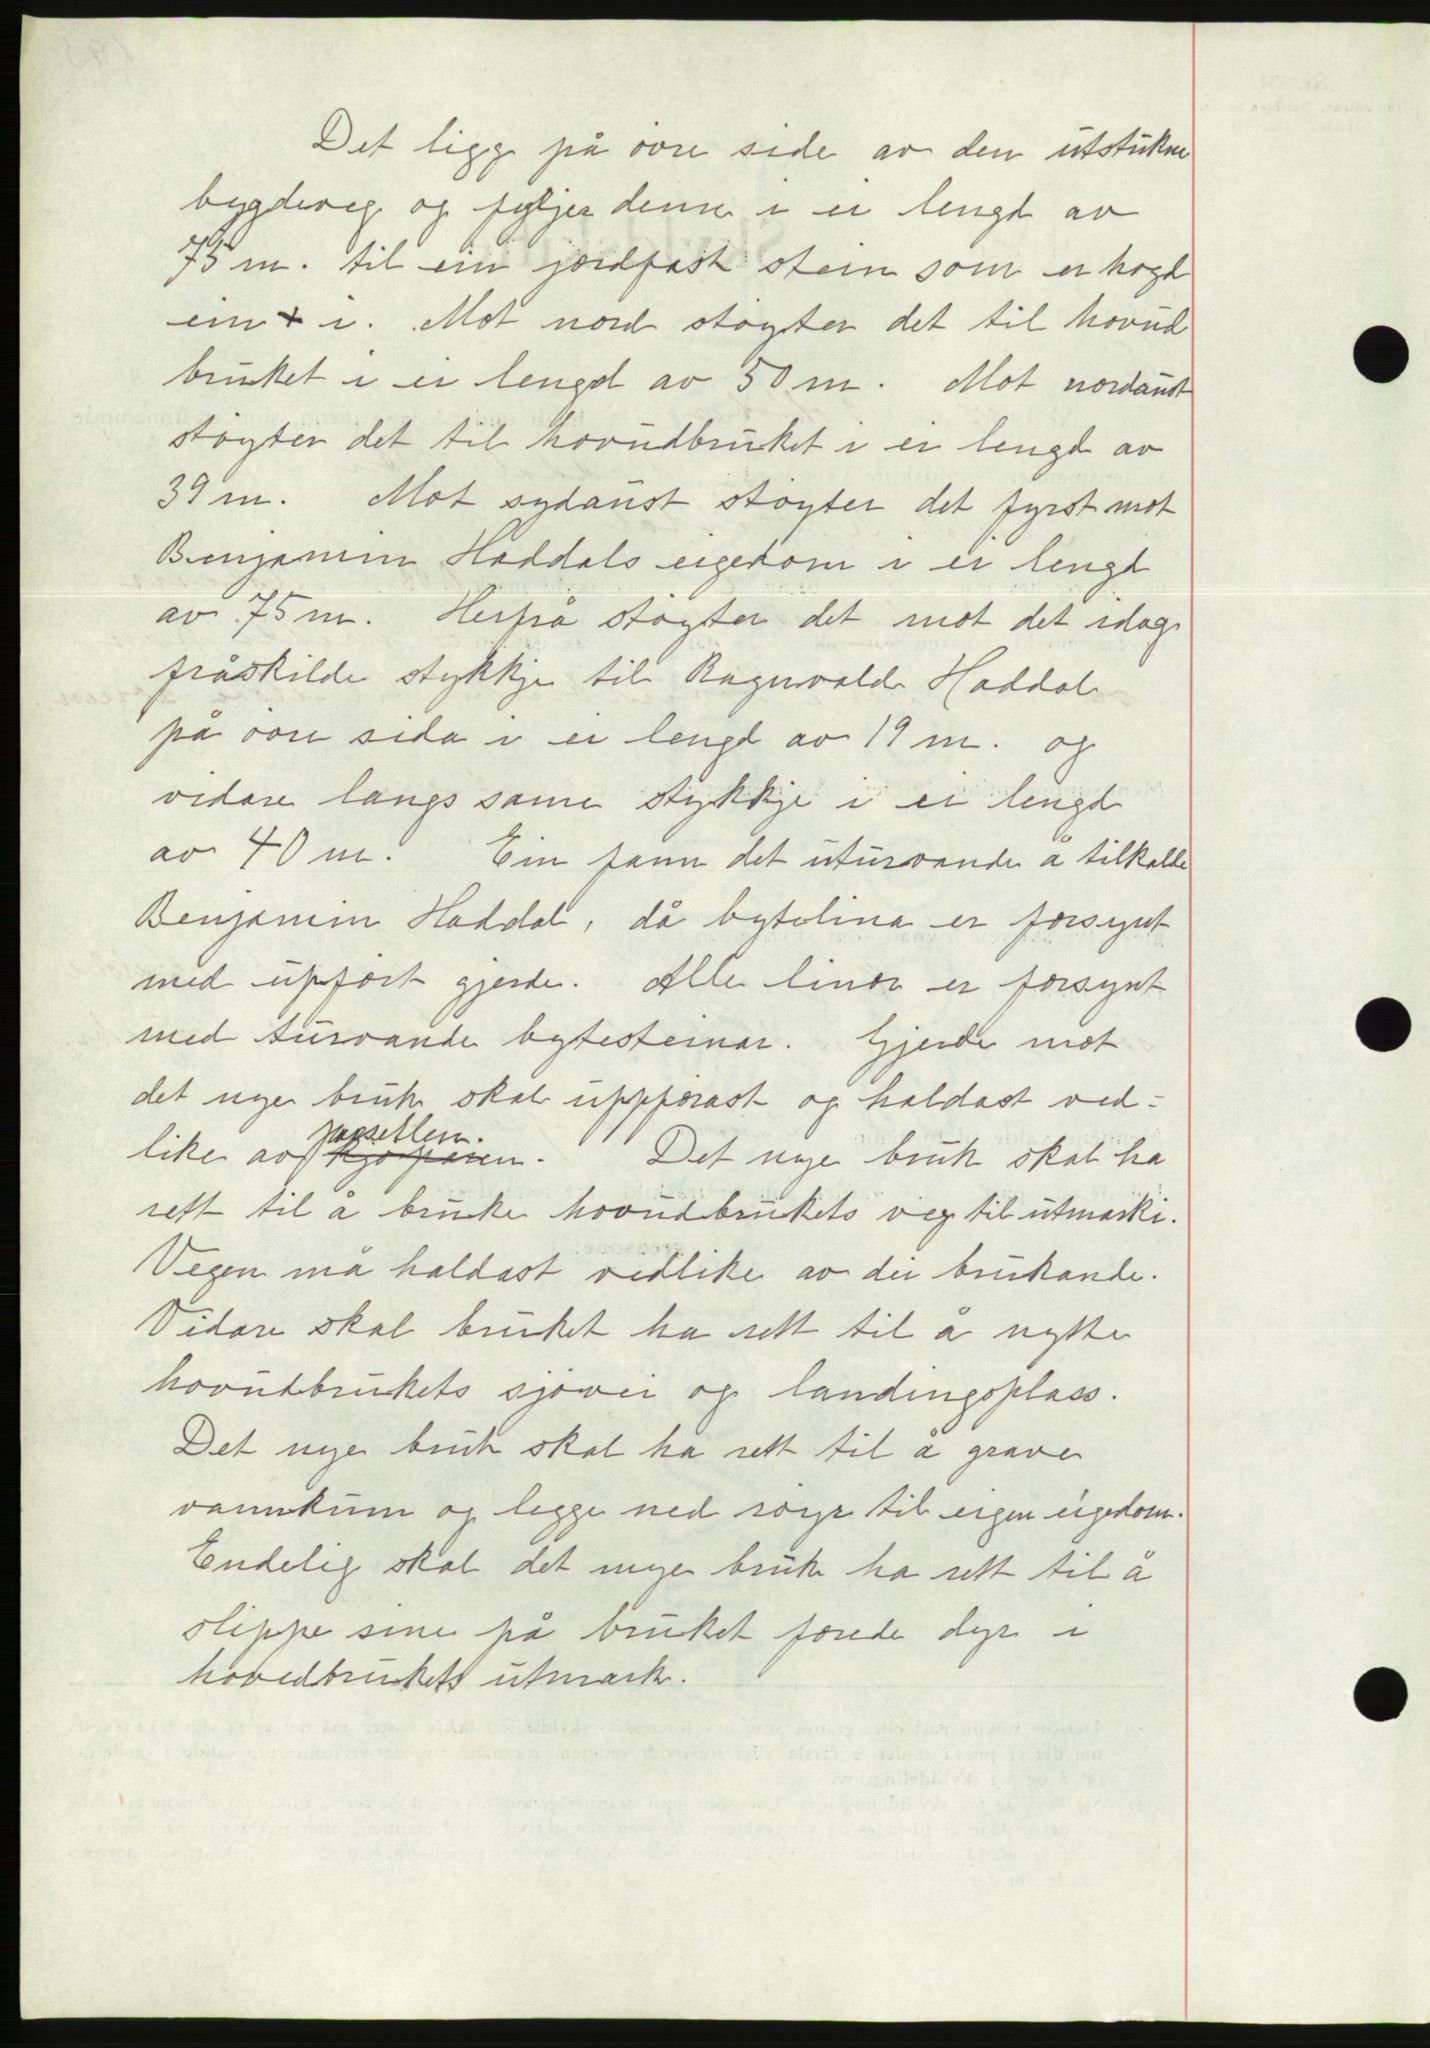 Det ligg på övre side av den utstukne
bygdeveg og fyljer denne i ei lengd av
75 m. til ein jordfast stein som er hogd
ein + i. Mot nord støyter det til hovud
bruket i ei lengd av 50 m. Mot nordaust
støyter det til hovudbruket i ei lengd av
39 m. Mot sydaust støyter det fyrst mot
Benjamin Haddals eigedom i ei lengd
av 75 m. Herfrå støyter det mot det idag
fråskilde stykkje til Ragnvald Haddal
på övre sida i ei lengd av 19 m. og
vidare langs same stykkje i ei lengd
av 40 m. Ein fann det uturvande å tilkalle
Benjamin Haddal, då bytelina er forsynt
med uppfört gjerde. Alle linor er forsynt
med turvande bytesteinar. Gjerde mot
det nye bruk skal uppförast og haldast ved-
parsellen.
like av kjöparen. Det nye bruk skal ha
rett til å bruke hovudbrukets veg til utmarki.
Vegen må haldast vedlike av dei brukande.
Vidare skal bruket ha rett til å nytte
hovudbrukets sjövei og landingsplass.
Det nye bruk skal ha rett til å grave
vannkum og legge ned röyr til eigen eigedom.
Endelig skal det nye bruk ha rett til å
slippe sine på bruket forede dyr i
hovedbrukets utmark.